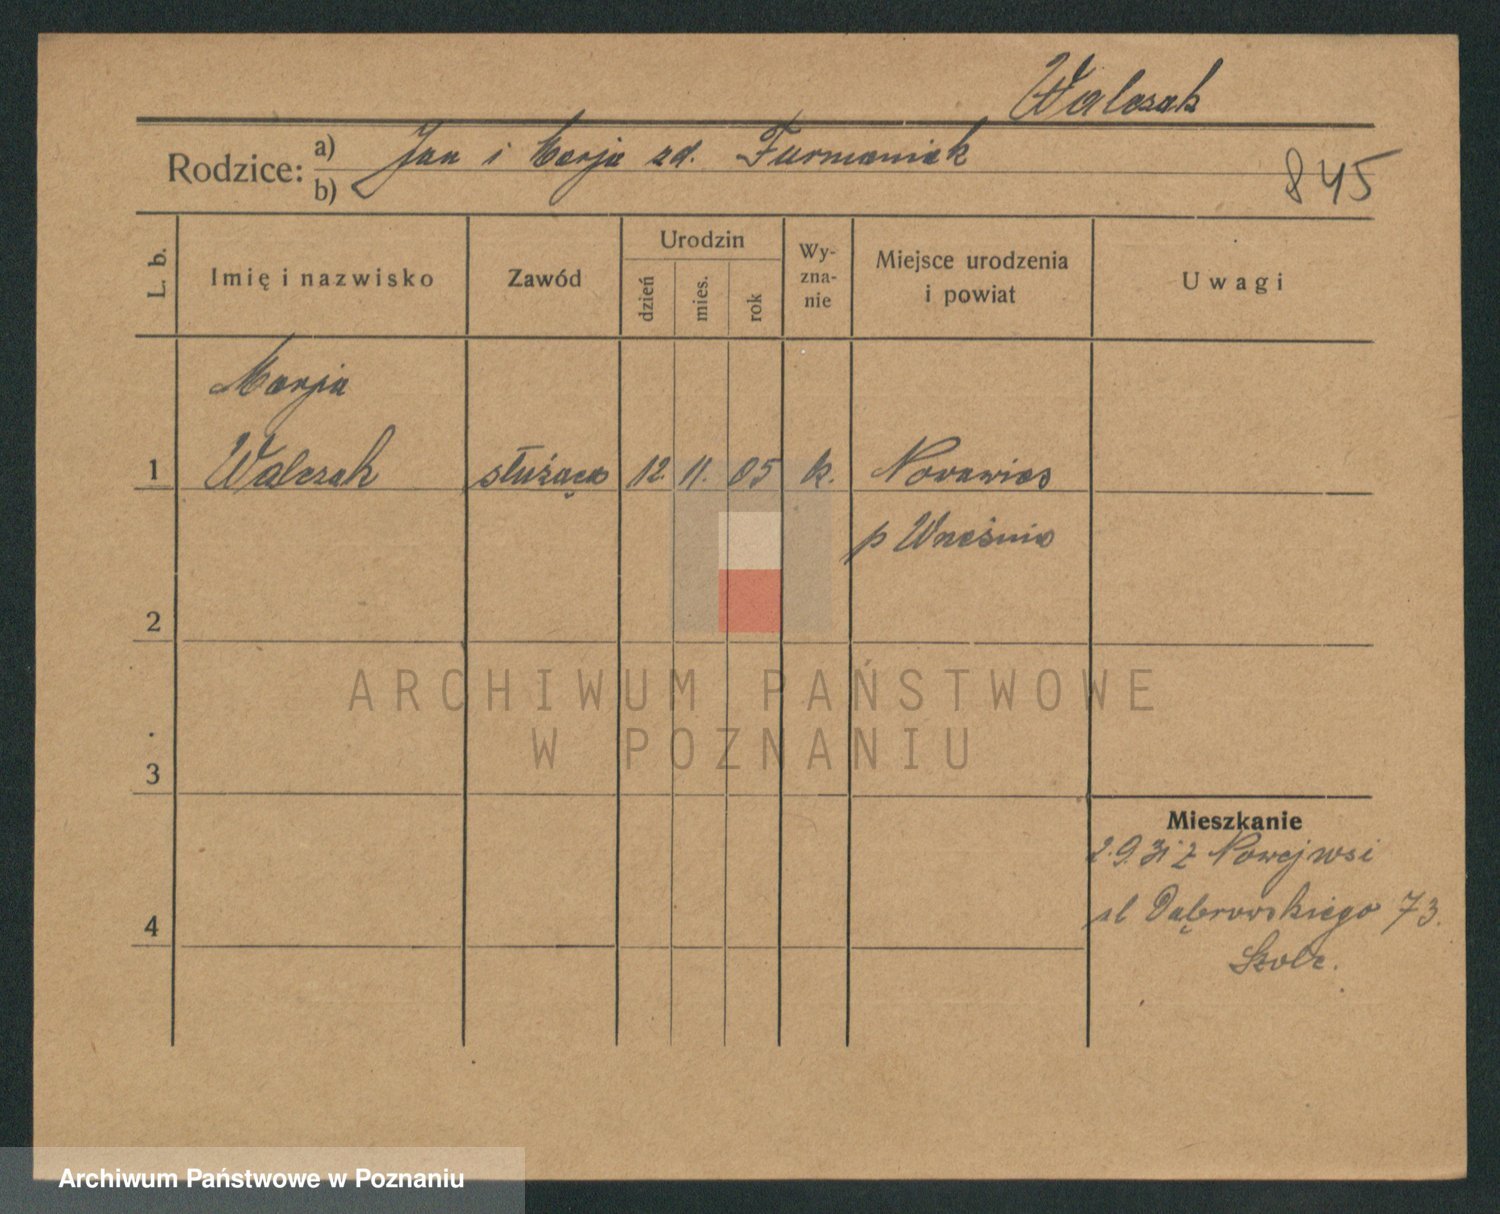 Walczak
Rodzice: a) Jan i Marja zd. Furmaniak
b)
845
L. b.
Imię i nazwisko
Zawód
Urodzin
dzień
mies.
rok
Wy-
zna-
nie
Miejsce urodzenia
i powiat
Uwagi
Marja
1 Walczak służąca 12. 11. 05 k. Nowawieś
p Września
2
3
4
Mieszkanie
2.9.31 z Nowejwsi
ul Dąbrowskiego 73.
ARCHIWUM PAŃSTWOWE
W POZNANIU
Archiwum Państwowe w Poznaniu